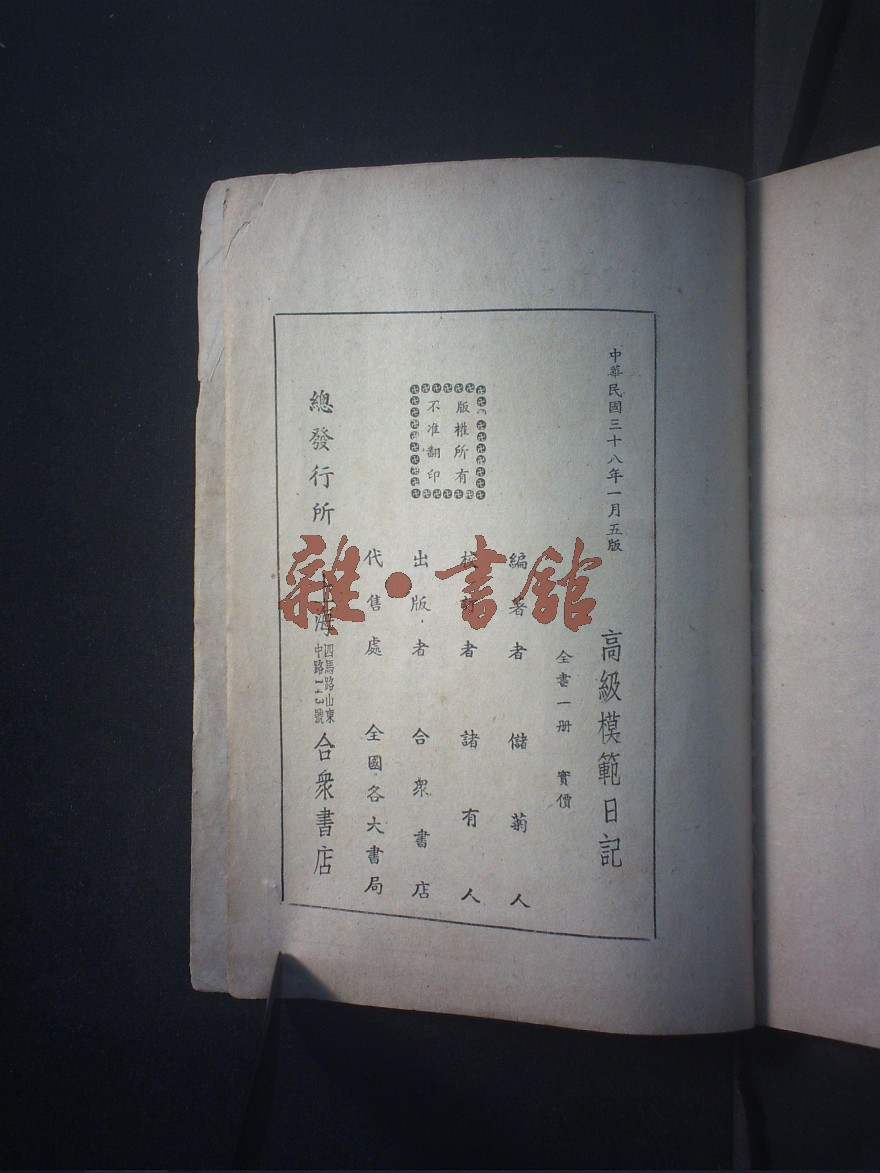 中華民國三十八年一月五版
高級模範日記
全書一册 實價
編著者 儲菊人
校訂者 諸有人
版權所有
不准翻印
出版者 合衆書店
代售處 全國各大書局
總發行所 上海 四馬路山東
中路143號 合衆書店
雜·書館